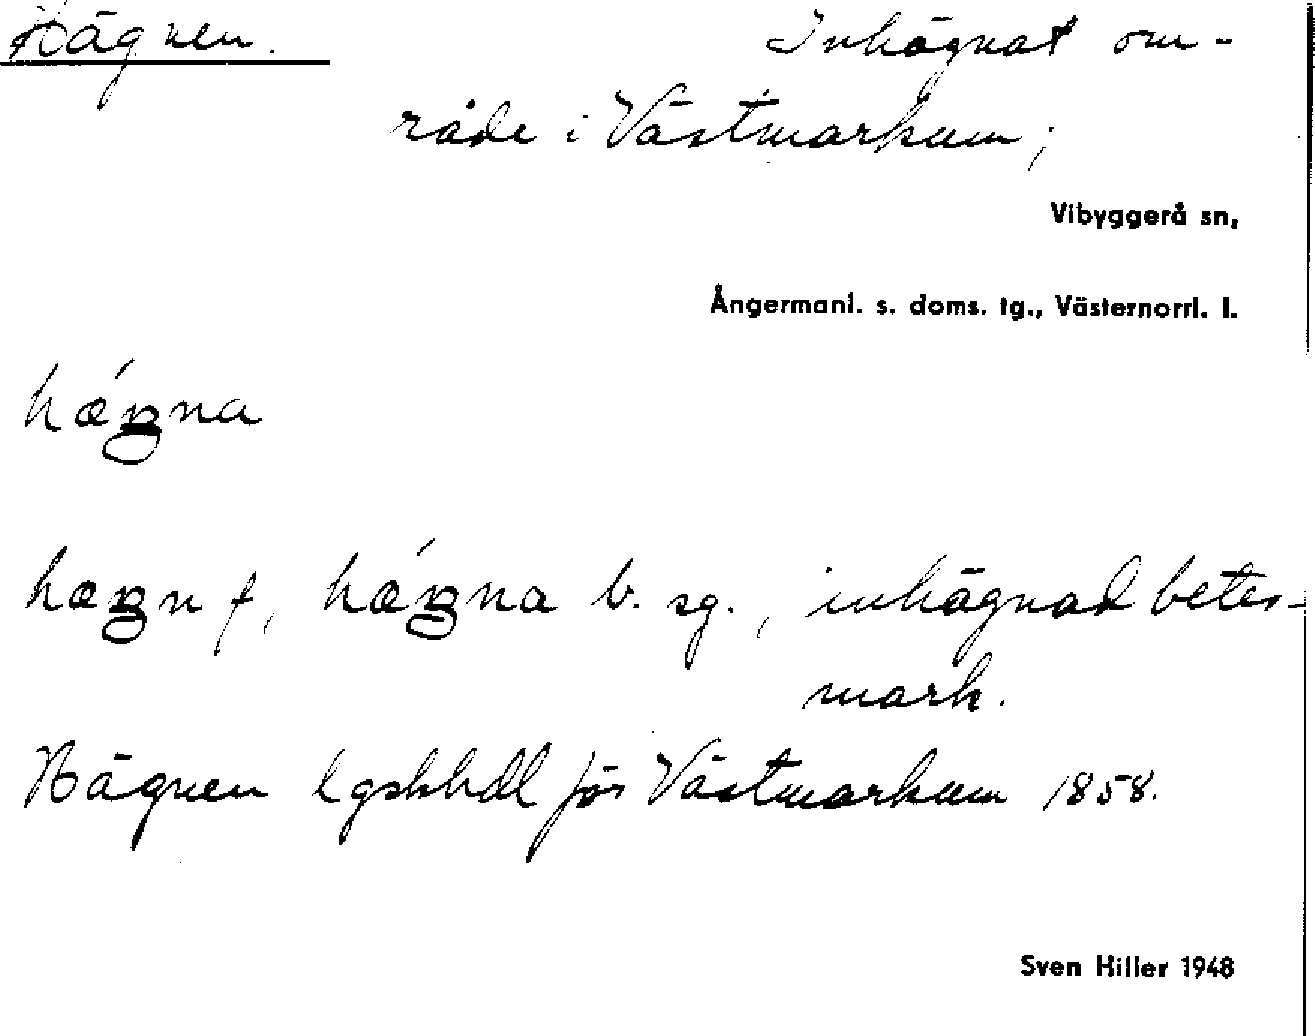 Hägnen. Inhägnat om-
råde i Västmarkum;
Vibyggerå sn,
Ångermanl. s. doms. tg., Västernorrl. l.
hǽŋna
hæŋn f, hǽŋna b. sg., inhägnad betes-
mark.
Hägnen lgskhdl för Västmarkum 1858.
Sven Hiller 1948